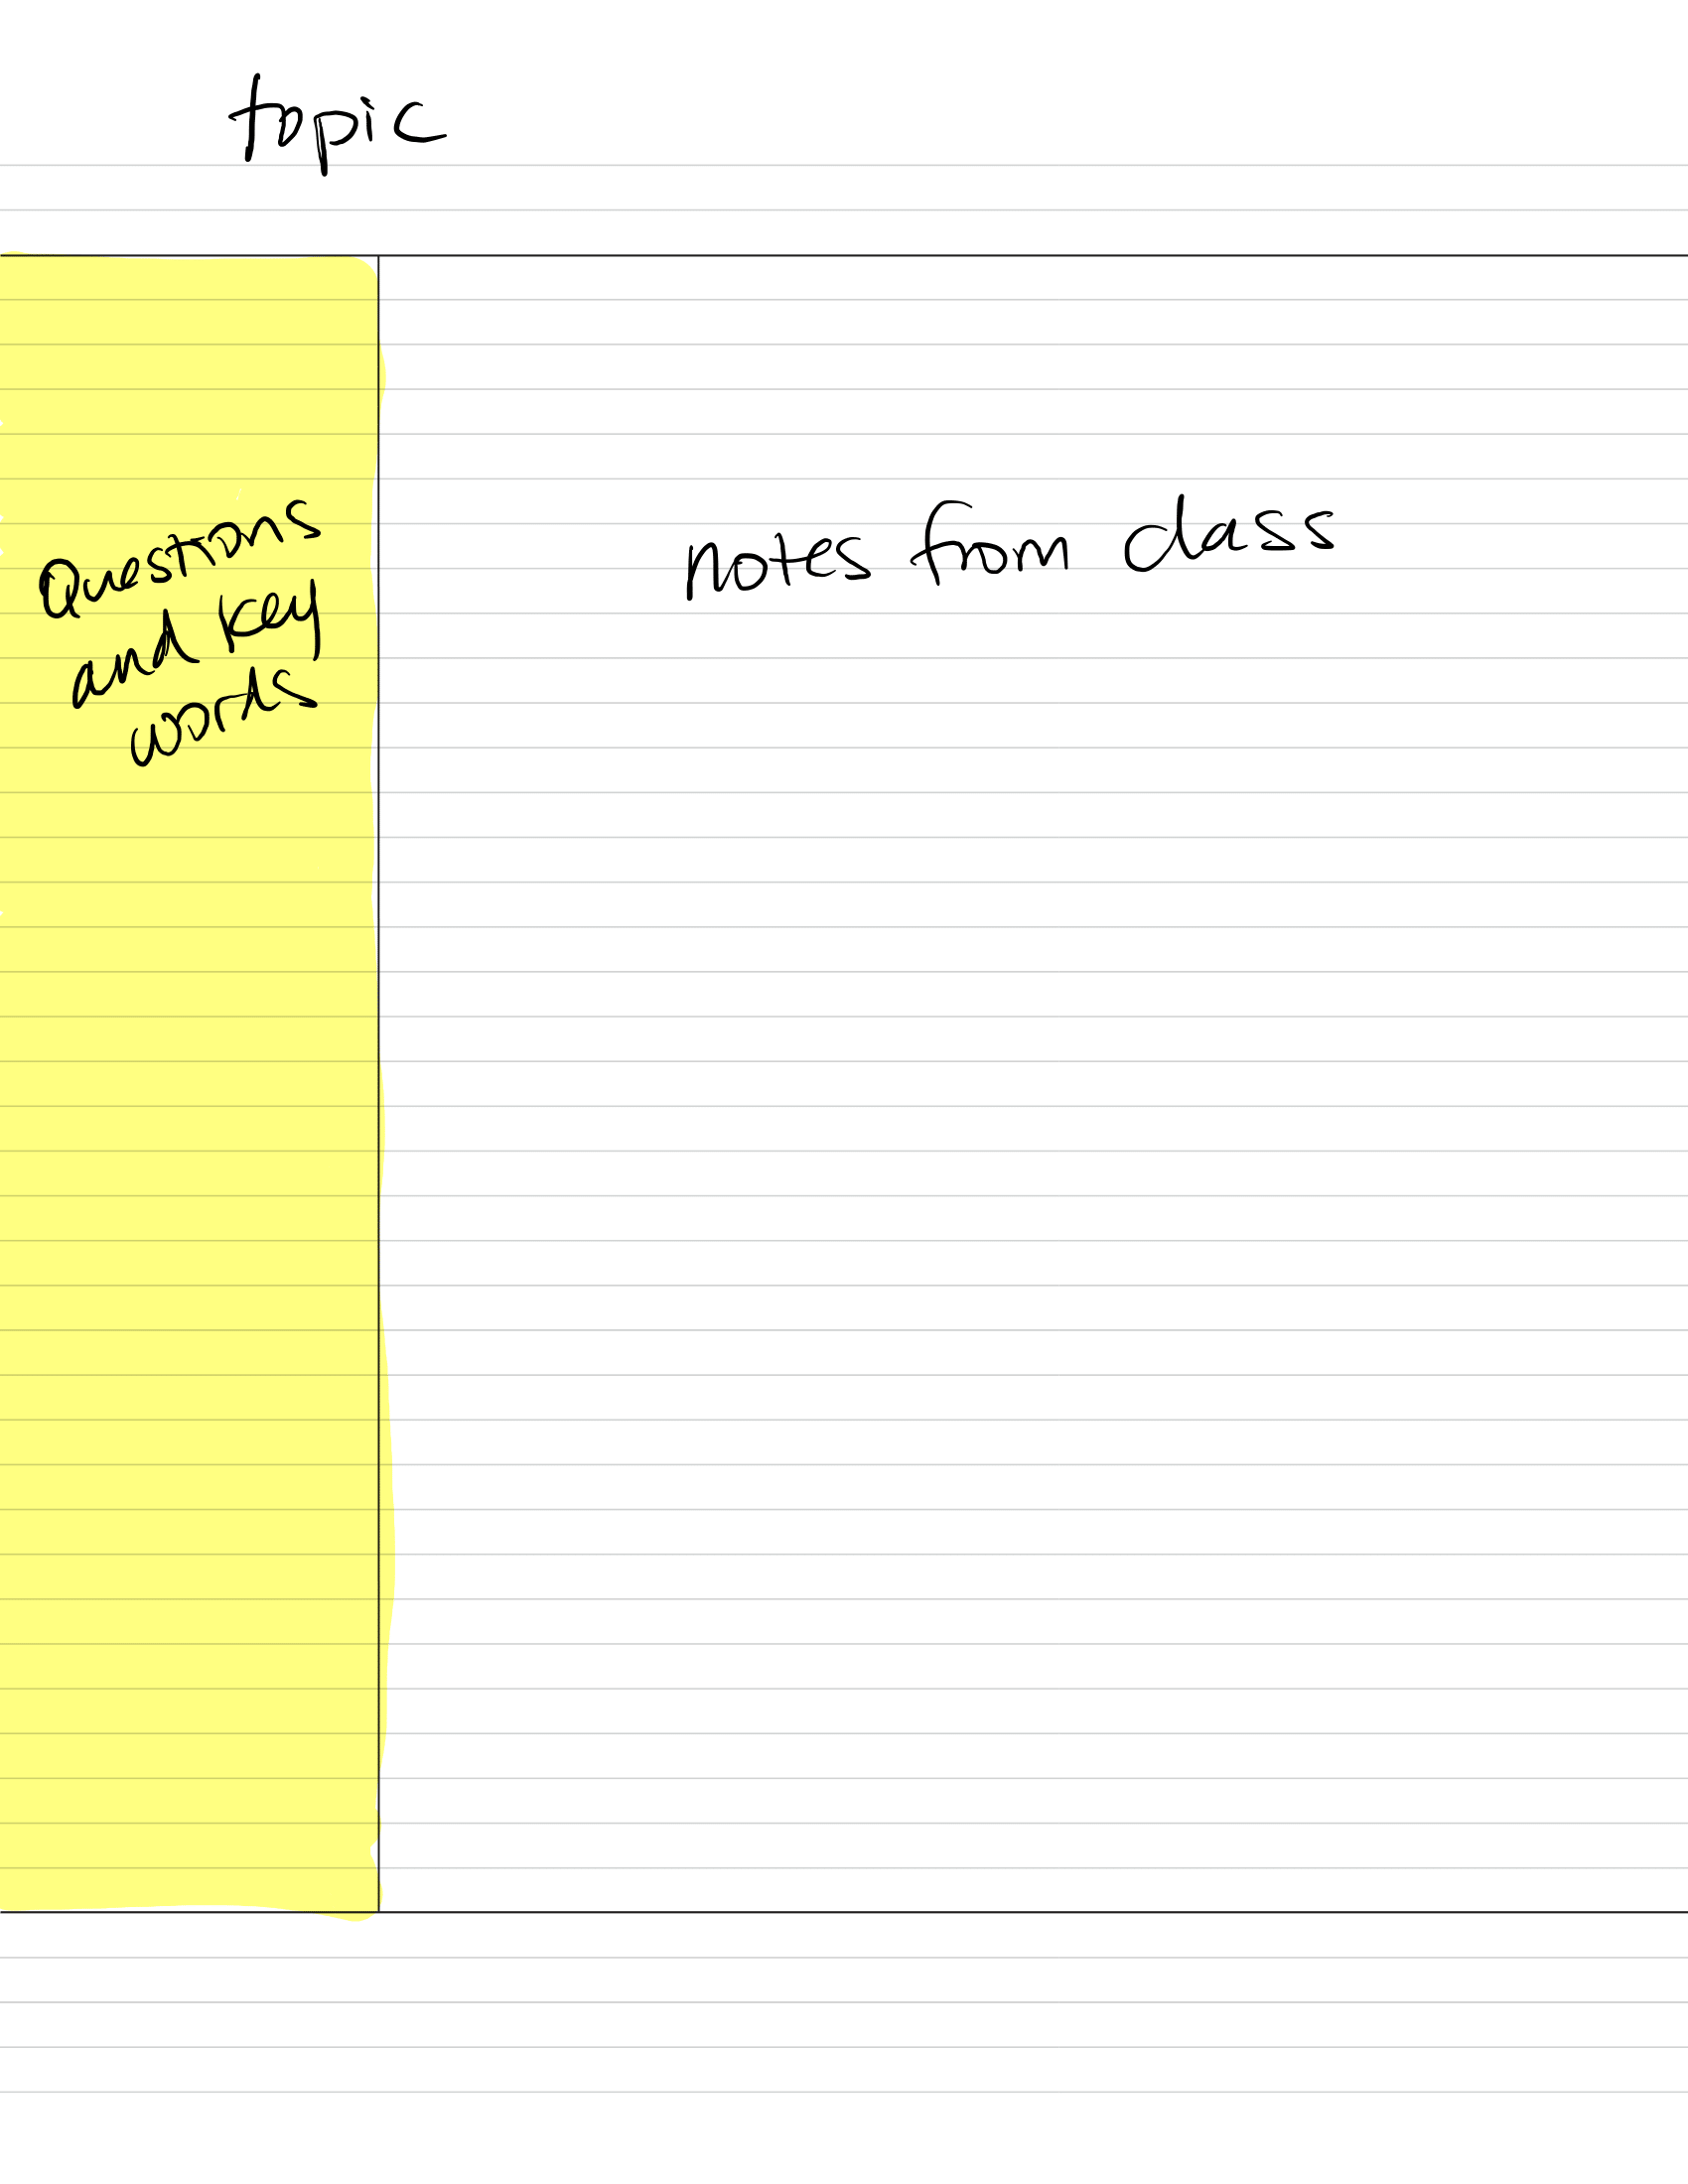 topic
Questions
and key
words
notes from class